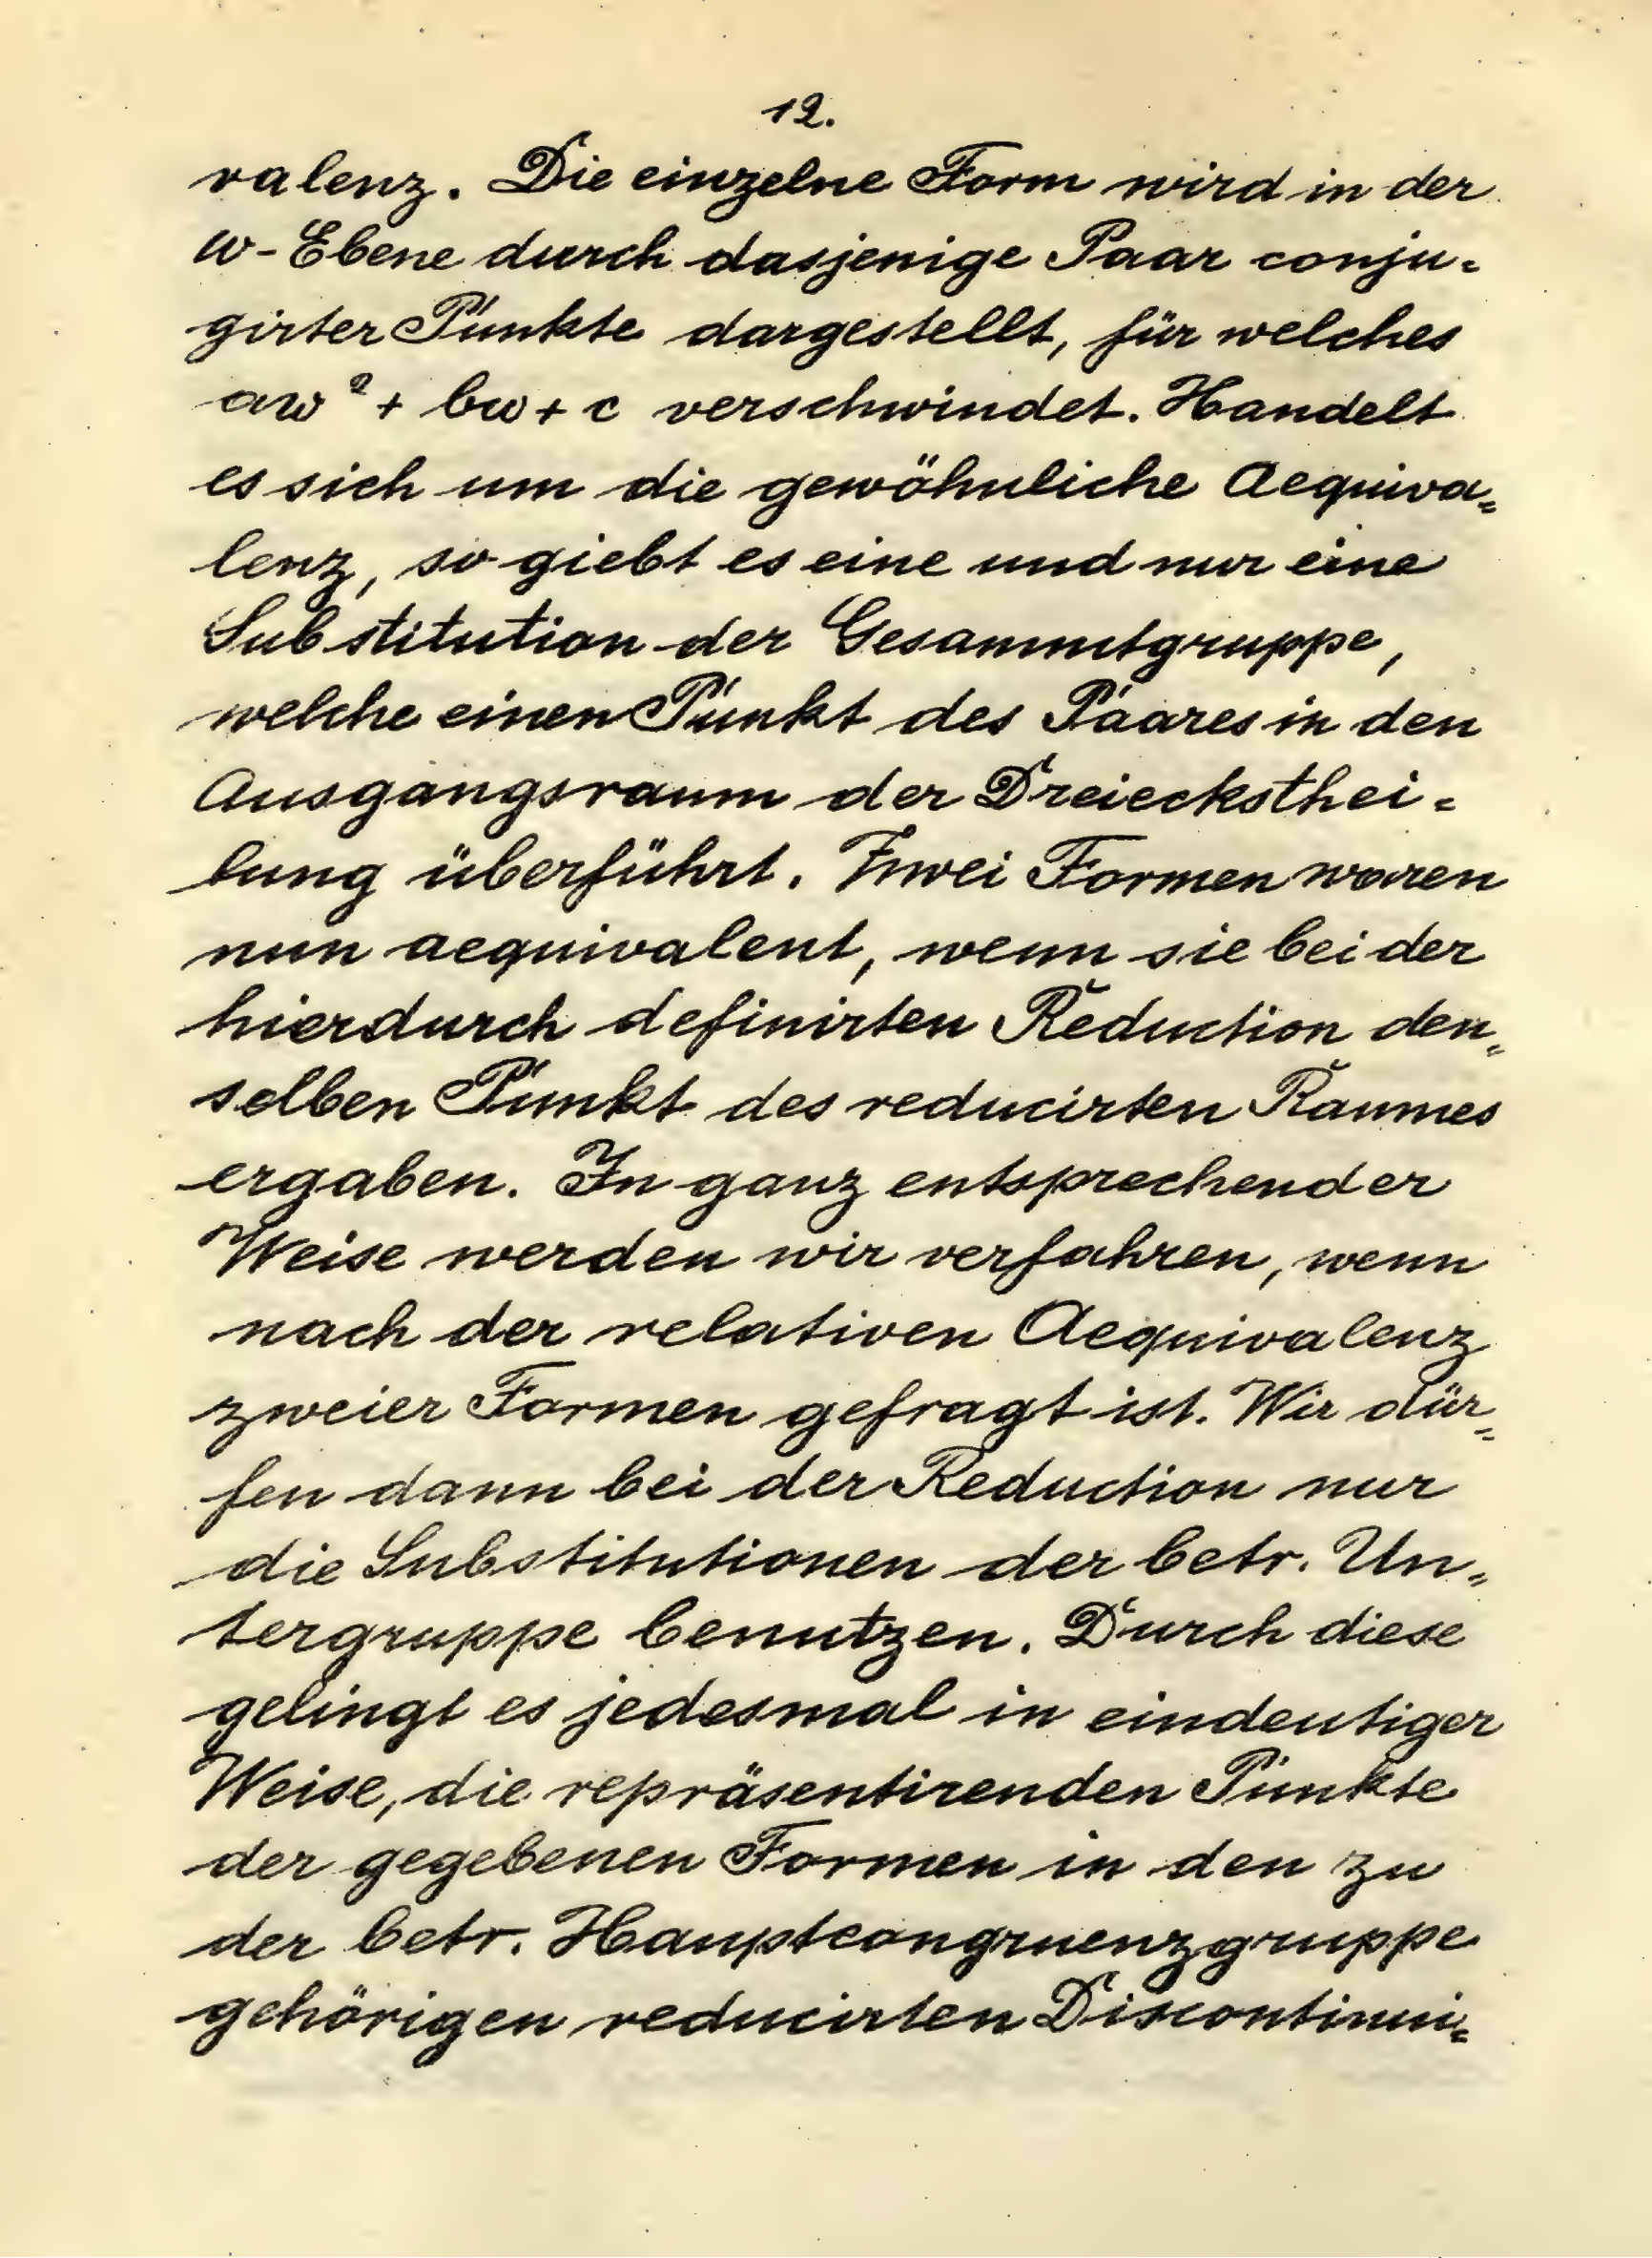 12.
valenz. Die einzelne Form wird in der
ω-Ebene durch dasjenige Paar conju-
girter Punkte dargestellt, für welches
aω² + bω + c verschwindet. Handelt
es sich um die gewöhnliche Aequiva-
lenz, so giebt es eine und nur eine
Substitution der Gesammtgruppe,
welche einen Punkt des Paares in den
Ausgangsraum der Dreiecksthei-
lung überführt. Zwei Formen waren
nun aequivalent, wenn sie bei der
hierdurch definirten Reduction den-
selben Punkt des reducirten Raumes
ergaben. In ganz entsprechender
Weise werden wir verfahren, wenn
nach der relativen Aequivalenz
zweier Formen gefragt ist. Wir dür-
fen dann bei der Reduction nur
die Substitutionen der betr. Un-
tergruppe benutzen. Durch diese
gelingt es jedesmal in eindeutiger
Weise, die repräsentirenden Punkte
der gegebenen Formen in den zu
der betr. Hauptcongruenzgruppe
gehörigen reducirten Discontinui-